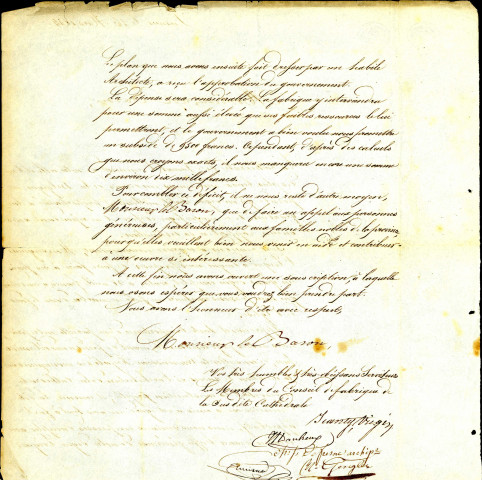 Le plan que nous avons ensuite fait dresser par un habile
Architecte, a reçu l'approbation du gouvernement.
La dépense sera considérable. La fabrique y interviendra
pour une somme aussi élevée que ses faibles ressources le lui
permettront, et le gouvernement a bien voulu nous promettre
un subside de 9500 francs. Cependant, d'après des calculs
que nous croyons exacts, il nous manquera encore une somme
d'environ dix mille francs.
Pour combler ce déficit, il ne nous reste d'autre moyen,
Monsieur le Baron, que de faire un appel aux personnes
généreuses, particulièrement aux familles nobles de la province,
pour qu'elles veuillent bien nous venir en aide et contribuer
à une œuvre si intéressante.
A cette fin nous avons ouvert une souscription, à laquelle
nous osons espérer que vous voudrez bien prendre part.
Nous avons l'honneur d'être avec respect,
Monsieur le Baron,
Vos très humbles & très obéissans Serviteurs
Les Membres du Conseil de fabrique de
la susdite Cathédrale